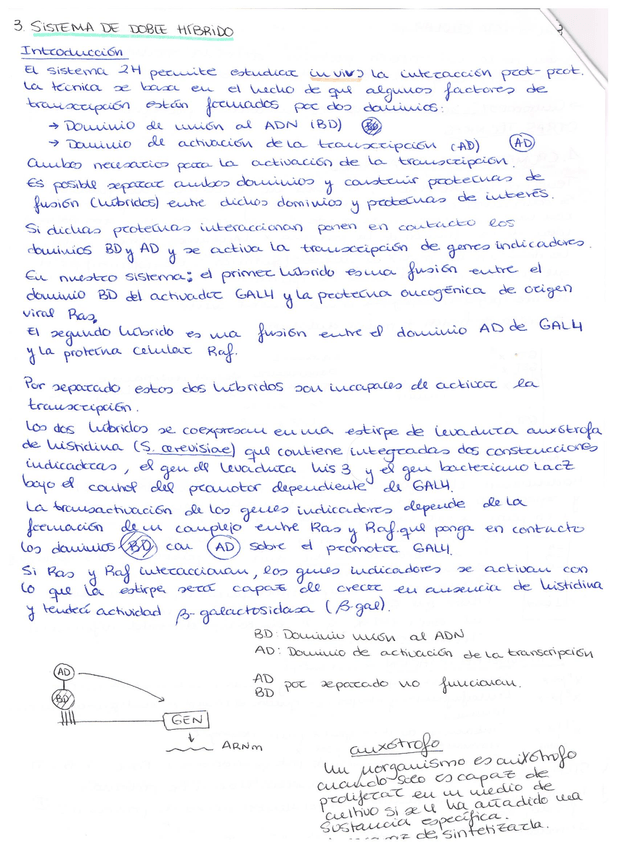 3. SISTEMA DE DOBLE HÍBRIDO
Introducción
El sistema 2H permite estudiar in vivo la interacción prot-prot.
La técnica se basa en el hecho de que algunos factores de
transcripción están formados por dos dominios:
→ Dominio de unión al ADN (BD) BD
→ Dominio de activación de la transcripción (AD) AD
Ambos necesarios para la activación de la transcripción.
Es posible separar ambos dominios y construir proteínas de
fusión (híbridos) entre dichos dominios y proteínas de interés.
Si dichas proteínas interaccionan ponen en contacto los
dominios BD y AD y se activa la transcripción de genes indicadores.
En nuestro sistema; el primer híbrido es una fusión entre el
dominio BD del activador GAL4 y la proteína oncogénica de origen
viral Ras.
El segundo híbrido es una fusión entre el dominio AD de GAL4
y la proteína celular Raf.
Por separado estos dos híbridos son incapaces de activar la
transcripción.
Los dos híbridos se coexpresan en una estirpe de levadura auxótrofa
de histidina (S. cerevisiae) que contiene integradas dos construcciones
indicadoras, el gen de levadura his3 y el gen bacteriano LacZ
bajo el control del promotor dependiente de GAL4.
La transactivación de los genes indicadores depende de la
formación de un complejo entre Ras y Raf que ponga en contacto
los dominios BD con AD sobre el promotor GAL4.
Si Ras y Raf interaccionan, los genes indicadores se activan con
lo que la estirpe será capaz de crecer en ausencia de histidina
y tendrá actividad β-galactosidasa (β-gal).
BD: Dominio unión al ADN
AD: Dominio de activación de la transcripción
AD
BD por separado no funcionan.
AD
BD
GEN
ARNm
auxótrofo
Un organismo es auxótrofo
cuando solo es capaz de
proliferar en un medio de
cultivo si se le ha añadido una
sustancia específica.
de sintetizarla.